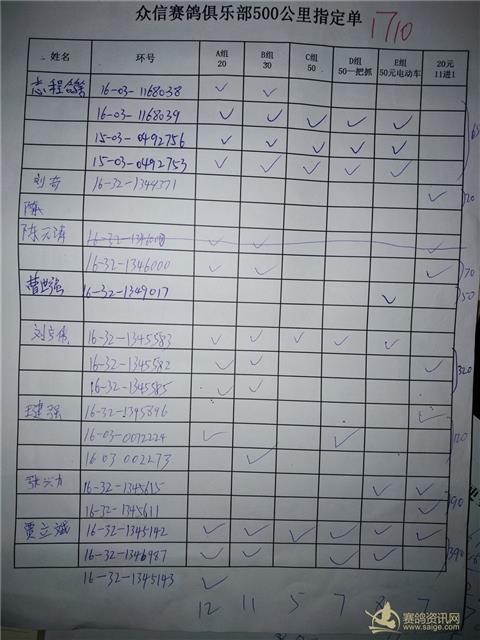 众信赛鸽俱乐部500公里指定单 1710
姓名 环号 A组 20 B组 30 C组 50 D组 50一把抓 E组 50元电动车 20元 11进1
志程鸽舍 16-03-1168038 ✓ ✓
16-03-1168039 ✓ ✓ ✓ ✓ ✓
15-03-0492756 ✓ ✓ ✓ ✓ ✓
15-03-0492753 ✓ ✓ ✓ ✓ ✓
16-32-1344371 ✓
陈元涛 ✓ ✓ ✓
16-32-1346000 ✓ ✓ ✓ 70
曹世强 16-32-1349017 ✓ 50
16-32-1345583 ✓ ✓ ✓ ✓ ✓
16-32-1345582 ✓ ✓ ✓ 320
16-32-1345585 ✓ ✓
16-32-1345896 ✓
16-03-0072224 ✓ ✓
16 03 002273 ✓
16-32-1345615 ✓ ✓
16-32-1345611 ✓ 90
贾立斌 16-32-1345142 ✓ ✓ ✓ ✓ ✓ ✓
16-32-1346987 ✓ ✓ ✓ ✓ 390
16-32-1345143 ✓
12 11 5 7 8 7
赛鸽资讯网
www.saige.com